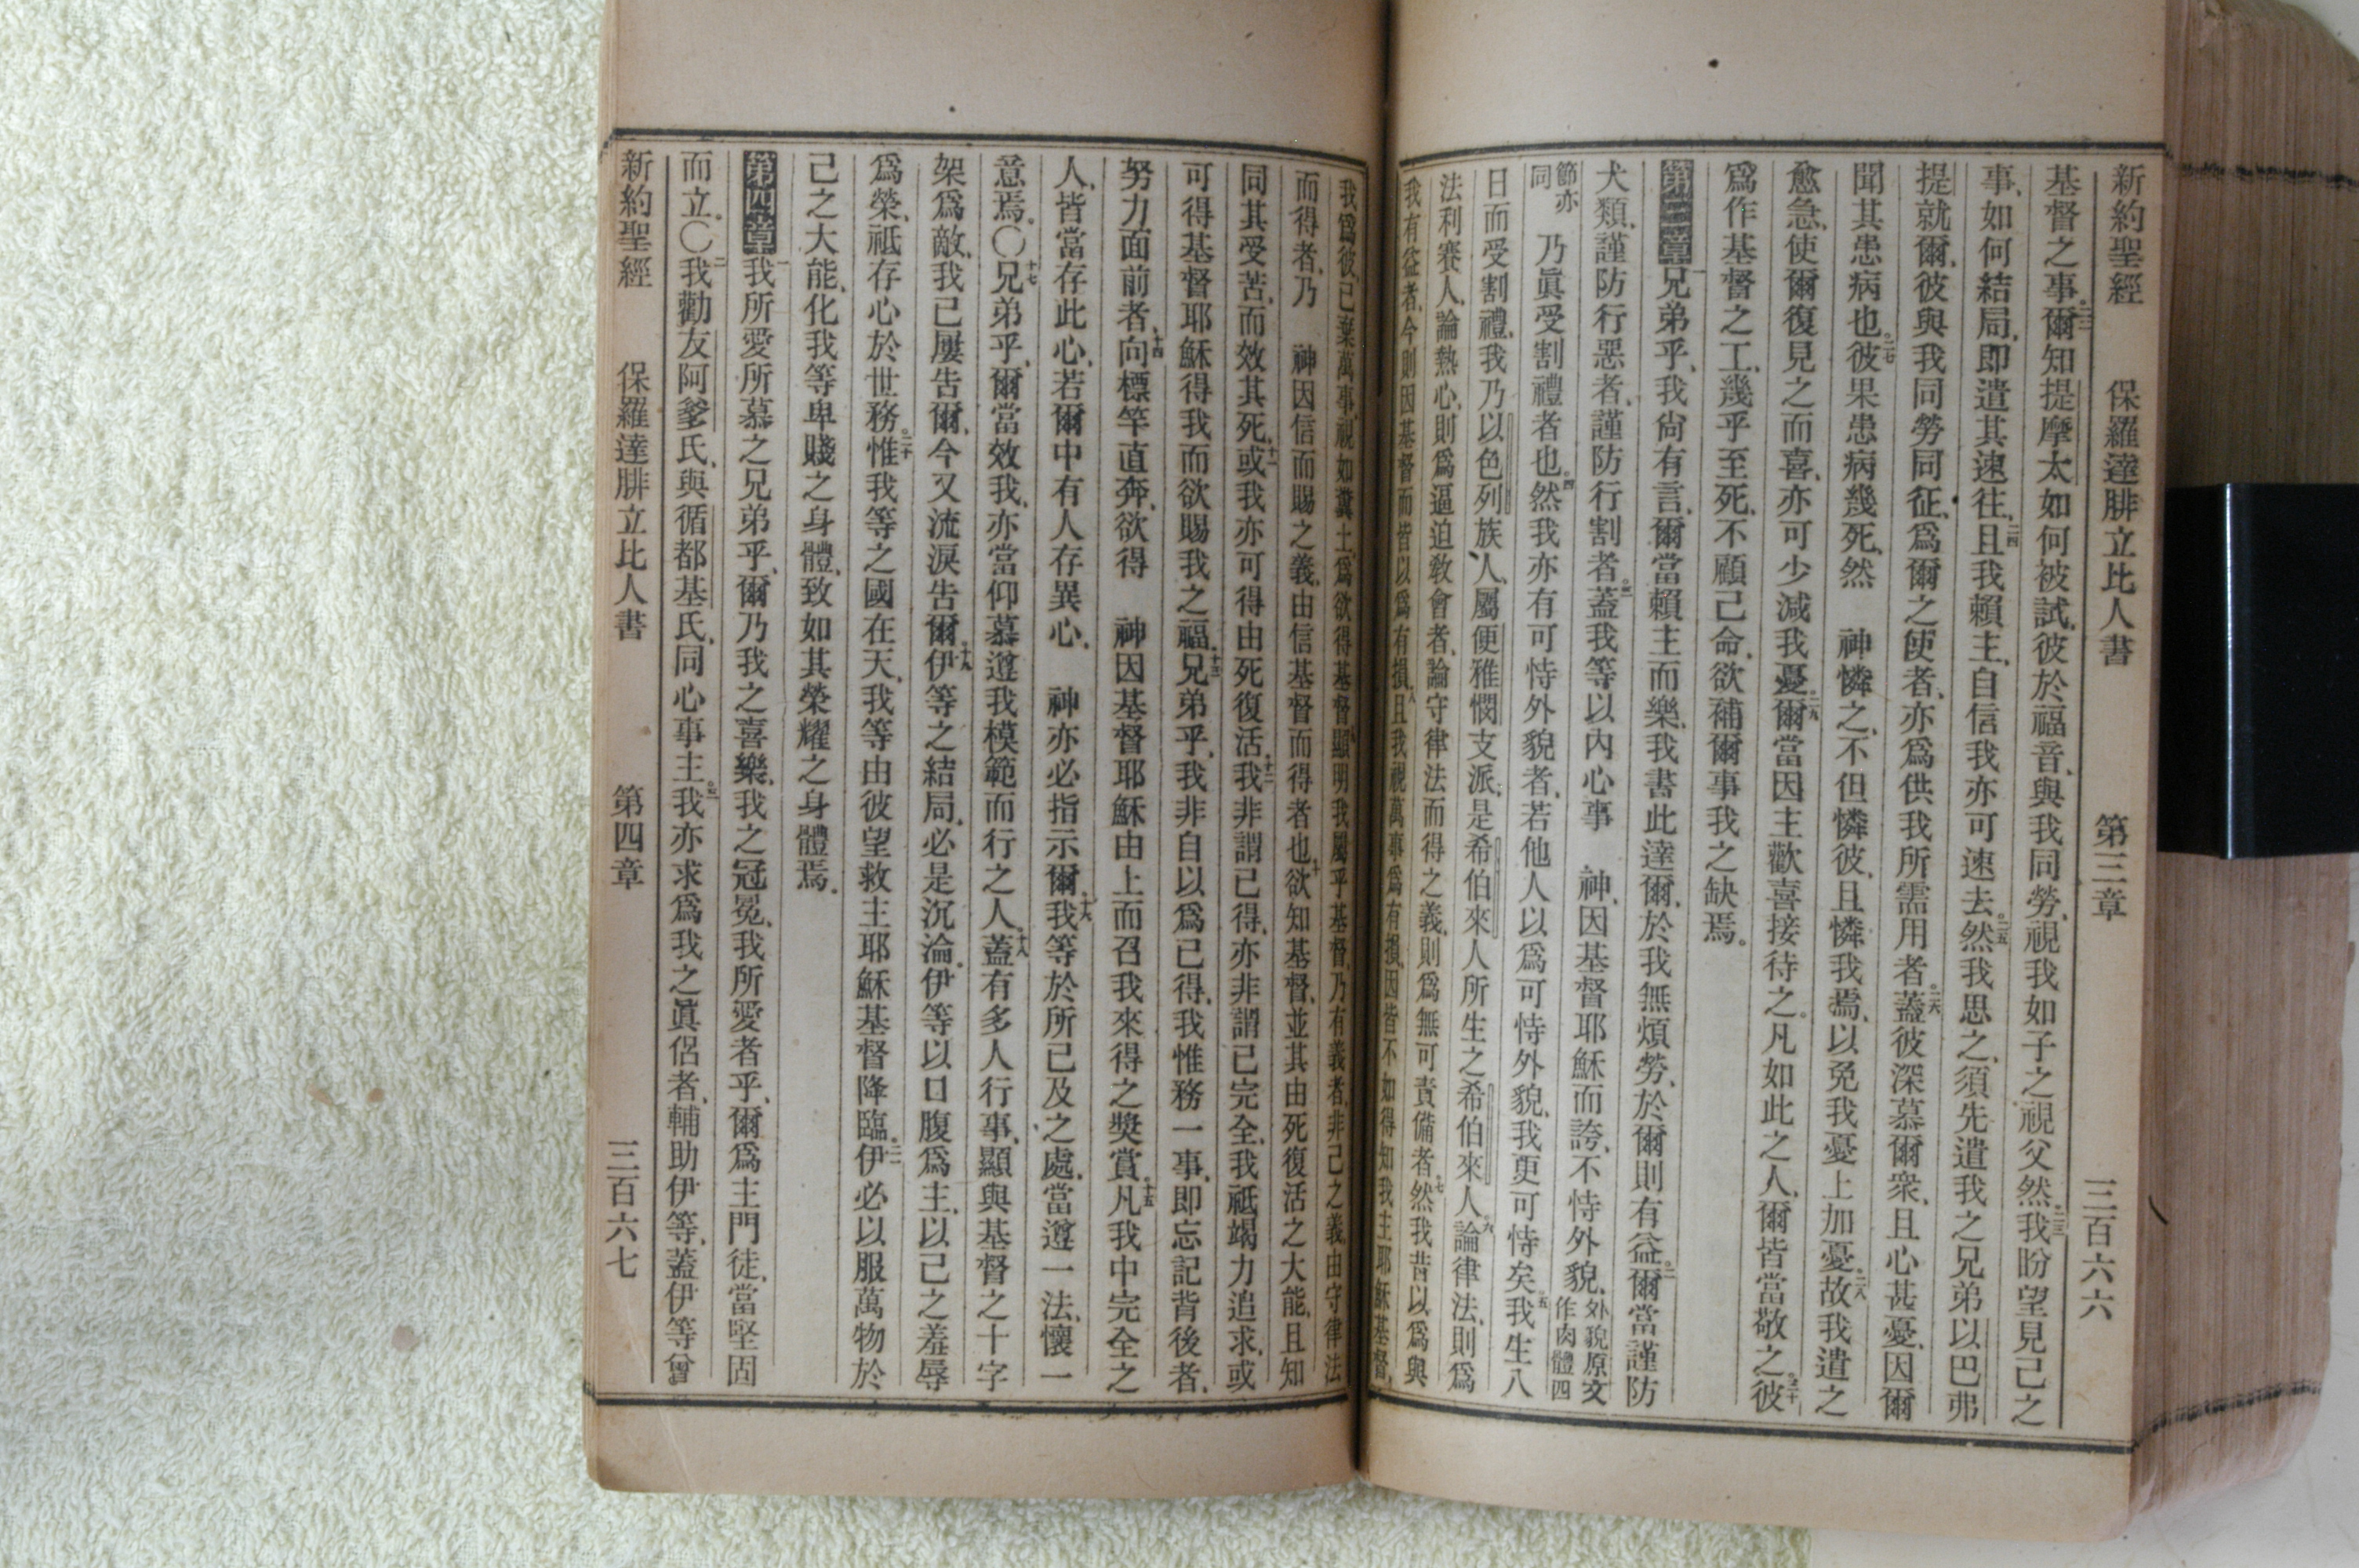 新約聖經　保羅達腓立比人書　第三章　三百六六
基督之事。二二爾知提摩太如何被試、彼於福音、與我同勞、視我如子之視父然。二三我盼望見己之
事、如何結局、即遣其速往、二四且我賴主、自信我亦可速去。二五然我思之、須先遣我之兄弟以巴弗
提就爾、彼與我同勞同征、爲爾之使者、亦爲供我所需用者。二六蓋彼深慕爾衆、且心甚憂、因爾
聞其患病也。二七彼果患病幾死、然　神憐之、不但憐彼、且憐我焉、以免我憂上加憂。二八故我遣之
愈急、使爾復見之而喜、亦可少減我憂。二九爾當因主歡喜接待之。凡如此之人、爾皆當敬之。三十彼
爲作基督之工、幾乎至死、不顧己命、欲補爾事我之缺焉。
第三章一兄弟乎、我尙有言、爾當賴主而樂、我書此達爾、於我無煩勞、於爾則有益。二爾當謹防
犬類、謹防行惡者、謹防行割者。三蓋我等以內心事　神、因基督耶穌而誇、不恃外貌、外貌原文作肉體四
節亦同　乃眞受割禮者也。四然我亦有可恃外貌者、若他人以爲可恃外貌、我更可恃矣。五我生八
日而受割禮、我乃以色列族人、屬便雅憫支派、是希伯來人所生之希伯來人、六論律法、則爲
法利賽人、論熱心、則爲逼迫敎會者、論守律法而得之義、則爲無可責備者。七然我昔以爲與
我有益者、今則因基督而皆以爲有損、八且我視萬事爲有損、因皆不如得知我主耶穌基督、
我爲彼、已棄萬事、視如糞土、爲欲得基督、九顯明我屬乎基督、乃有義者、非己之義、由守律法
而得者、乃　神因信而賜之義、由信基督而得者也、十欲知基督、並其由死復活之大能、且知
同其受苦、而效其死、十一或我亦可得由死復活、十二我非謂已得、亦非謂已完全、我祇竭力追求、或
可得基督耶穌得我而欲賜我之福。十三兄弟乎、我非自以爲已得、我惟務一事、即忘記背後者、
努力面前者、十四向標竿直奔、欲得　神因基督耶穌由上而召我來得之獎賞。十五凡我中完全之
人、皆當存此心、若爾中有人存異心、　神亦必指示爾、十六我等於所已及之處、當遵一法、懷一
意焉。〇十七兄弟乎、爾當效我、亦當仰慕遵我模範而行之人。十八蓋有多人行事、顯與基督之十字
架爲敵、我已屢告爾、今又流淚告爾、十九伊等之結局、必是沉淪。伊等以口腹爲主、以己之羞辱
爲榮、祇存心於世務。二十惟我等之國在天、我等由彼望救主耶穌基督降臨。二一伊必以服萬物於
己之大能、化我等卑賤之身體、致如其榮耀之身體焉。
第四章一我所愛所慕之兄弟乎、爾乃我之喜樂、我之冠冕、我所愛者乎、爾爲主門徒、當堅固
而立。〇二我勸友阿爹氏、與循都基氏、同心事主。三我亦求爲我之眞侶者、輔助伊等、蓋伊等曾
新約聖經　保羅達腓立比人書　第四章　三百六七